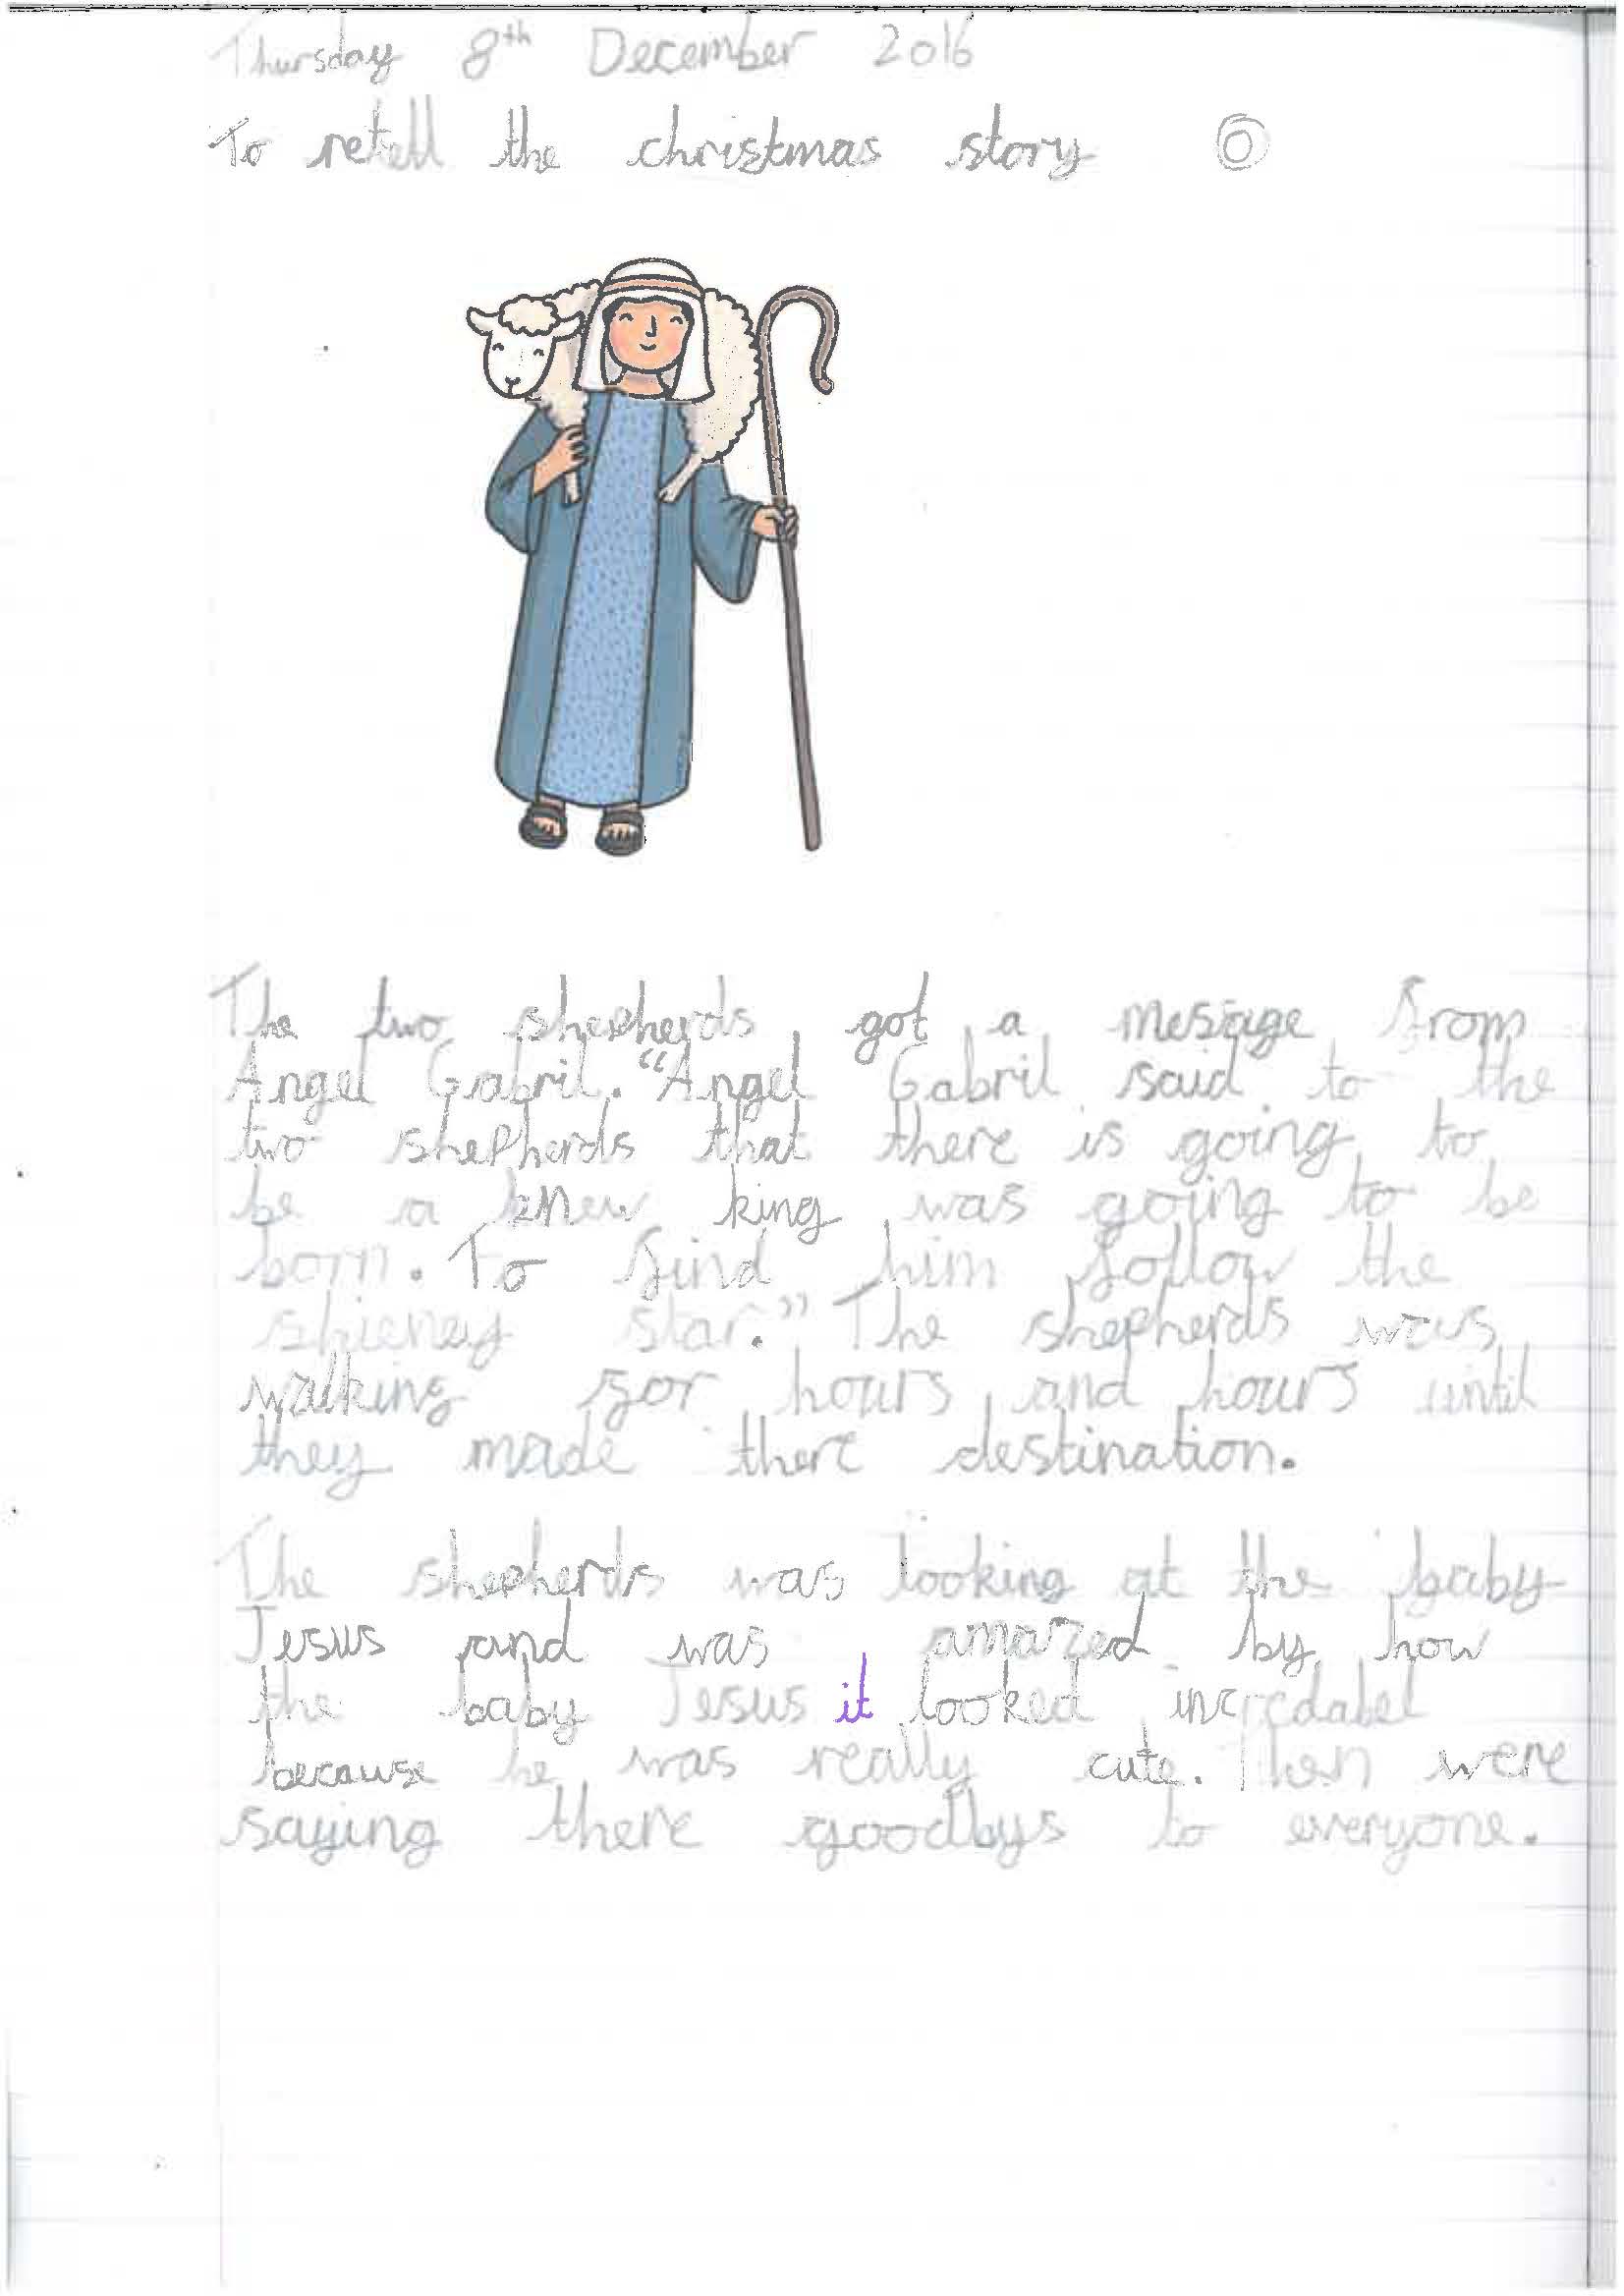 Thursday 8th December 2016
To retell the christmas story
The two shepherds got a mesage from
Angel Gabril. "Angel Gabril said to the
two shepherds that there is going to
be a knew king was going to be
born. To find him follow the
shieney star." The shepherds was
walking for hours and hours until
they made there destination.
The shepherds was looking at the baby
Jesus and was amazed by how
the baby Jesus it looked incredabel
because he was really cute. Then were
saying there goodbys to everyone.